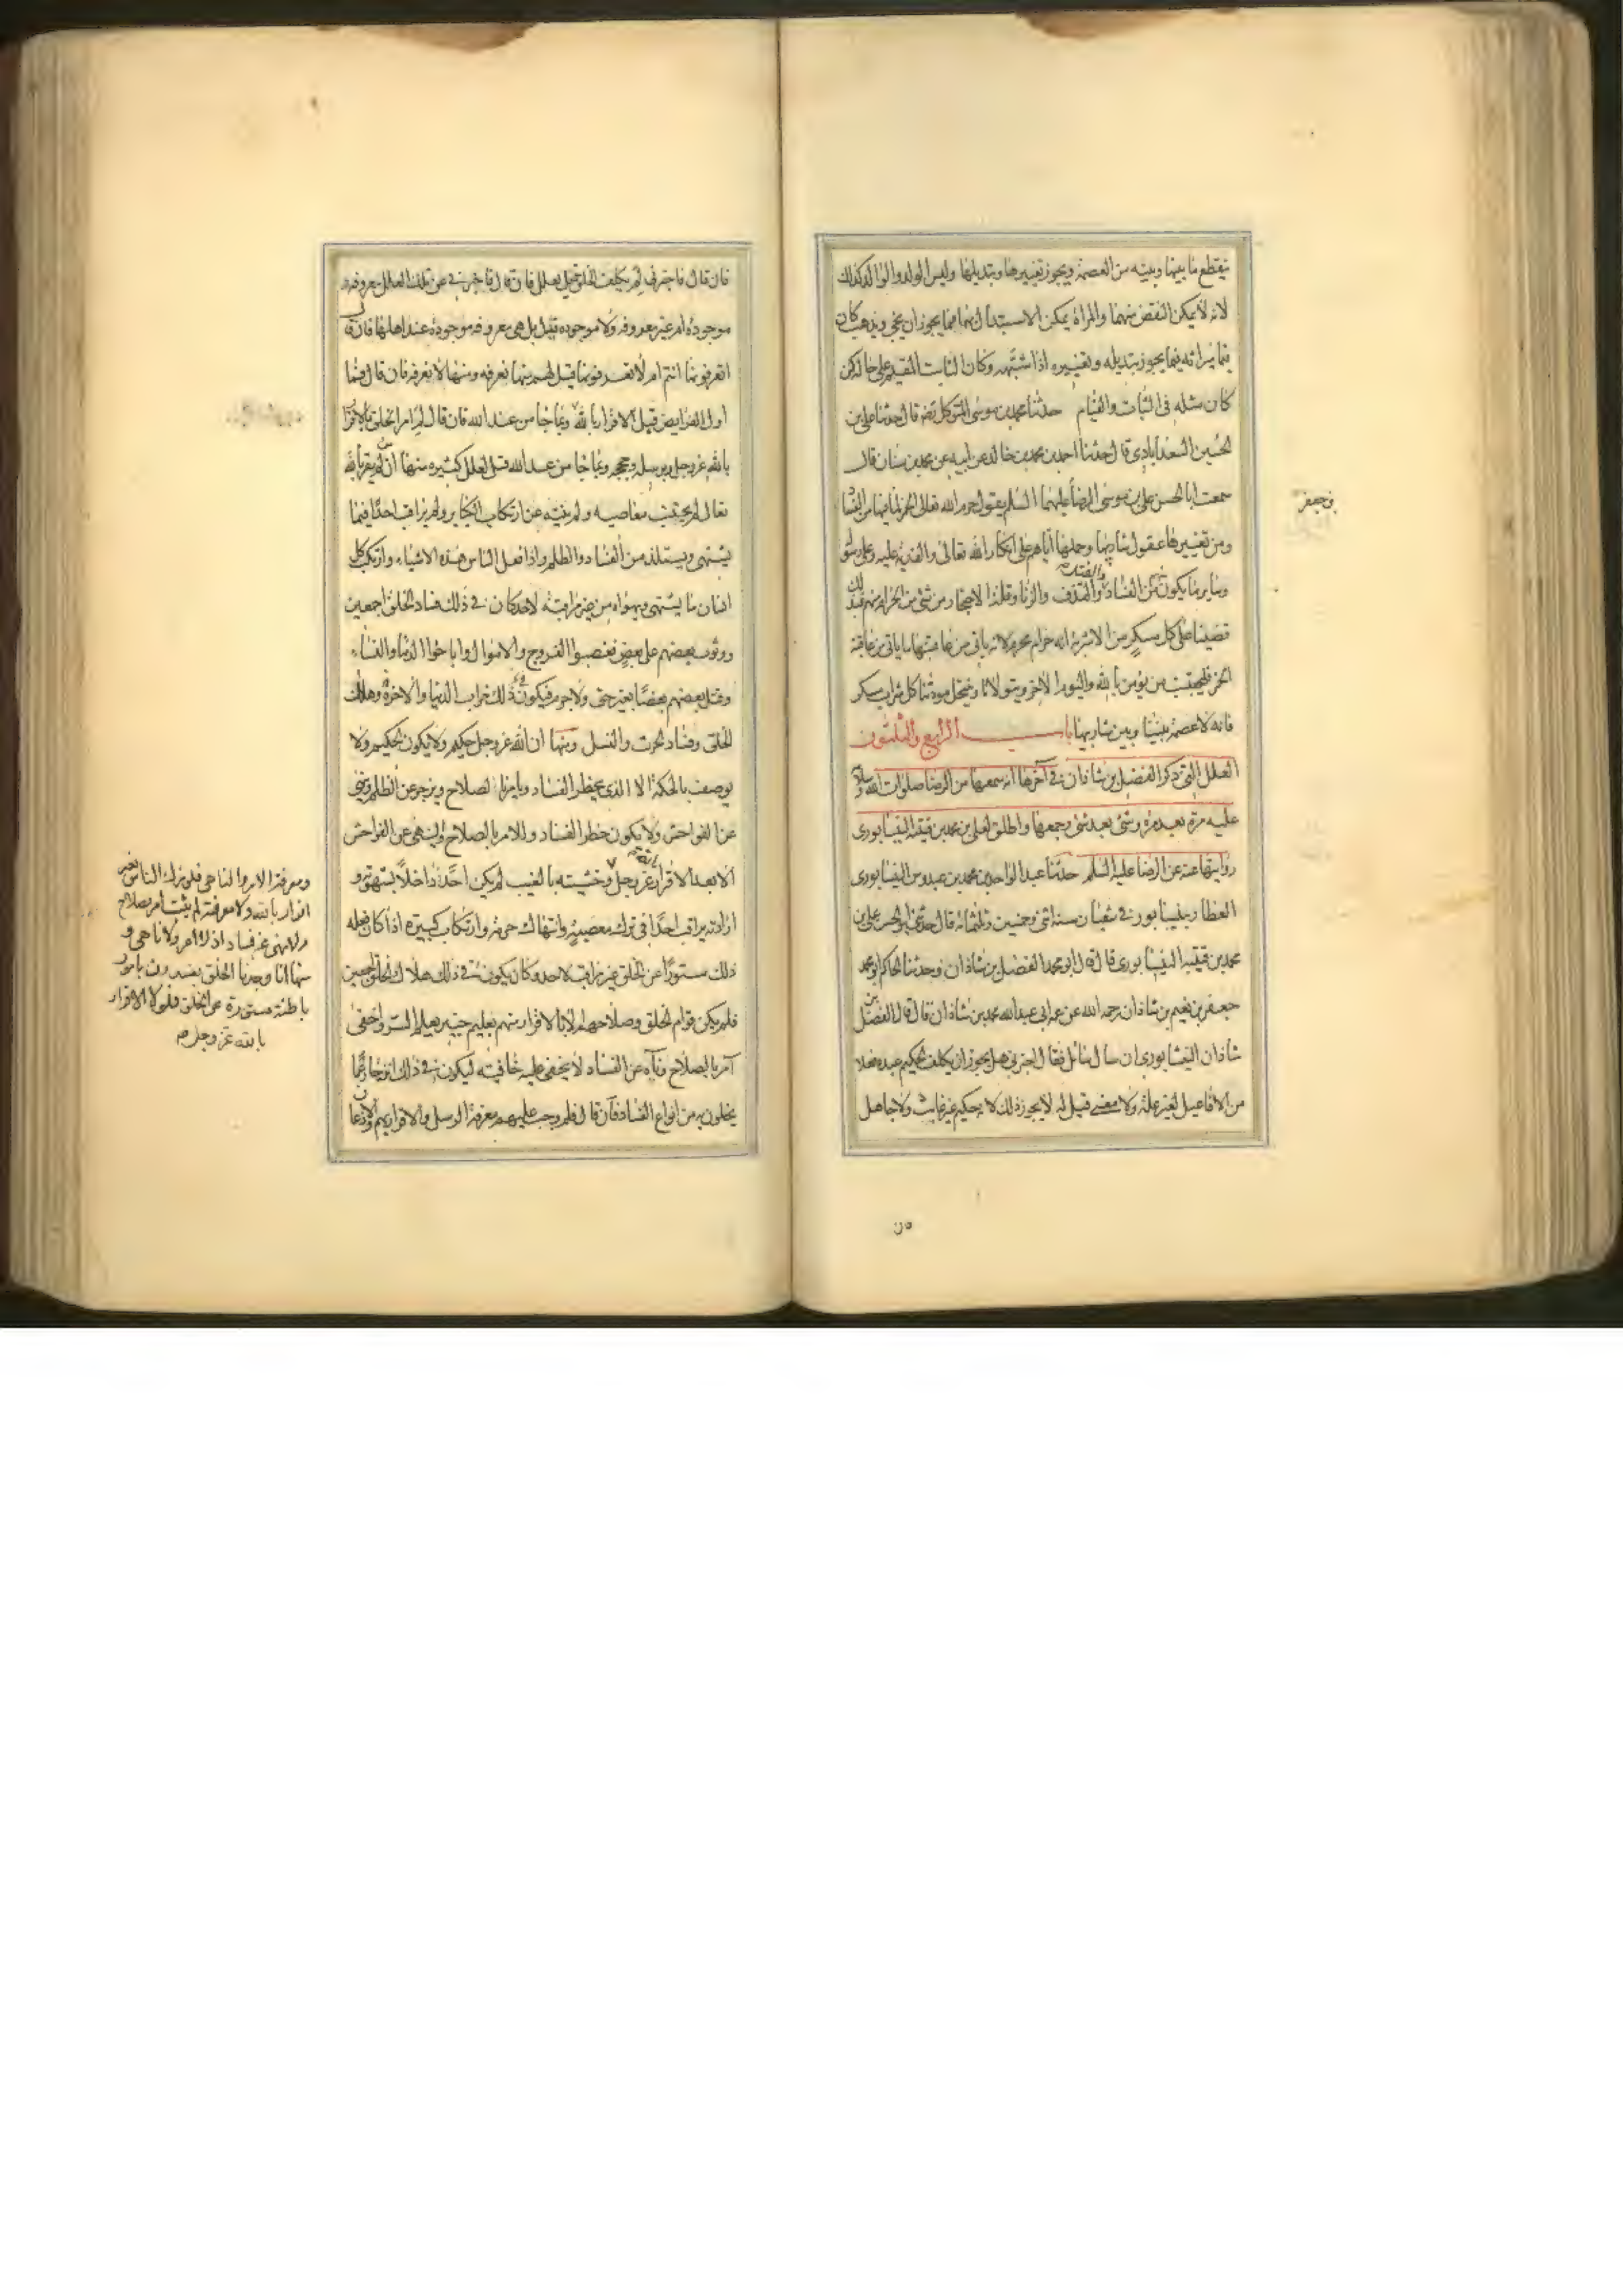 ينقطع ما بينها وبينه من العصمة ويجوز تغييرها وتبديلها وليس الولد والوالد كذلك
لانه لا يمكن النقض منهما والمراة يمكن الاستبدال بها مما يجوز ان يجئ ويذهب كان
ميراثه فيما يجوز تبديله وتغييره اذا شبهه وكان الثابت المقيم على حاله لمن
كان مثله في الثبات والقيام حدثنا محمد بن موسى المتوكل رضه قال حدثنا علي بن
الحسين السعدابادي قال حدثنا احمد بن محمد بن خالد عن ابيه عن محمد بن سنان قال
سمعت ابا الحسن علي بن موسى الرضا عليهما السلم يقول حرم الله تعالى الخمر لما فيها من الفساد
بن جعفر
ومن تغييرها عقول شاربها وحملها اياهم على انكار الله تعالى والفرية عليه وعلى رسله
وساير ما يكون منهم من الفساد والقتل والقذف والزنا وقلة الاحتجاز من شئ من الحرام فبذلك
قضينا على كل مسكر من الاشربة انه حرام محرم لانه ياتي من عاقبتها ما ياتي من عاقبة
الخمر فليجتنب من يؤمن بالله واليوم الاخر ويتولانا وينتحل مودتنا كل شراب مسكر
فانه لا عصمة بيننا وبين شاربها باب الرابع والثلثون
العلل التي ذكر الفضل بن شاذان في آخرها انه سمعها من الرضا صلوات الله وسلامه
عليه مرة بعد مرة وشئ بعد شئ وجمعها واطلق لعلي بن محمد بن قتيبة النيسابوري
روايتها عنه عن الرضا عليه السلم حدثنا عبد الواحد بن محمد بن عبدوس النيسابوري
العطار بنيسابور في شعبان سنة اثني وخمسين وثلثمائة قال حدثني ابو الحسن علي بن
محمد بن قتيبة النيسابوري قال قال ابو محمد الفضل بن شاذان وحدثنا الحاكم ابو محمد
جعفر بن نعيم بن شاذان رحمه الله عن عمه ابي عبد الله محمد بن شاذان قال قال الفضل بن
شاذان النيشابوري ان سال سائل فقال اخبرني هل يجوز ان يكلف الحكيم عبده فعلا
من الافاعيل لغير علة ولا معنى قيل له لا يجوز ذلك لانه حكيم غير عابث ولا جاهل
فان قال فاخبرني لم يكلف الخلق قيل لعلل فان قال فاخبرني عن تلك العلل معروفة
موجودة ام غير معروفة ولا موجودة قيل بل هي معروفة موجودة عند اهلها فان قال
اتعرفونها انتم ام لا تعرفونها قيل لهم منها نعرفه ومنها لا نعرفه فان قال فما
اول الفرايض قيل الاقرار بالله وبما جاء من عند الله فان قال لم امر الخلق بالاقرار
بالله عز وجل وبرسله وحججه وبما جاء من عند الله قيل لعلل كثيرة منها ان من لم يقر بالله
تعالى لم يجتنب معاصيه ولم ينته عن ارتكاب الكباير ولم يراقب احدا فيما
يشتهي ويستلذ من الفساد والظلم واذا فعل الناس هذه الاشياء وارتكب كل
انسان ما يشتهي ويهواه من غير مراقبة لاحد كان في ذلك فساد الخلق اجمعين
ووثوب بعضهم على بعض فغصبوا الفروج والاموال واباحوا الدماء والنساء
وقتل بعضهم بعضا بغير حق ولا جرم فيكون في ذلك خراب الدنيا والاخرة وهلاك
الخلق وفساد الحرث والنسل ومنها ان الله عز وجل حكيم ولا يكون الحكيم ولا
يوصف بالحكمة الا الذي يحظر الفساد ويامر بالصلاح ويزجر عن الظلم وينهى
عن الفواحش ولا يكون حظر الفساد والامر بالصلاح والنهي عن الفواحش
الا بعد الاقرار بالله عز وجل وخشيته بالغيب لم يكن احد اذا خلا بشهوته و
ارادته يراقب احدا في ترك معصية وانتهاك حرمة وارتكاب كبيرة اذا كان فعله
ذلك مستورا عن الخلق غير مراقب لاحد وكان يكون في ذلك هلاك الخلق اجمعين
فلم يكن قوام الخلق وصلاحهم الا بالاقرار منهم بعليم خبير يعلم السر واخفى
آمر بالصلاح وناه عن الفساد لا يخفى عليه خافية ليكون في ذلك انزجار عما
يخلون به من انواع الفساد فان قال فلم وجب عليهم معرفة الرسل والاقرار بهم والاذعان
ومعرفة الامر والناهي فلو ترك الناس بغير
اقرار بالله ولا معرفته لم يثبت امر بصلاح
ولا نهي عن فساد اذ لا امر ولا ناهي و
منها انا وجدنا الخلق يفسدون بامور
باطنة مستورة عن الخلق فلولا الاقرار
بالله عز وجل صح